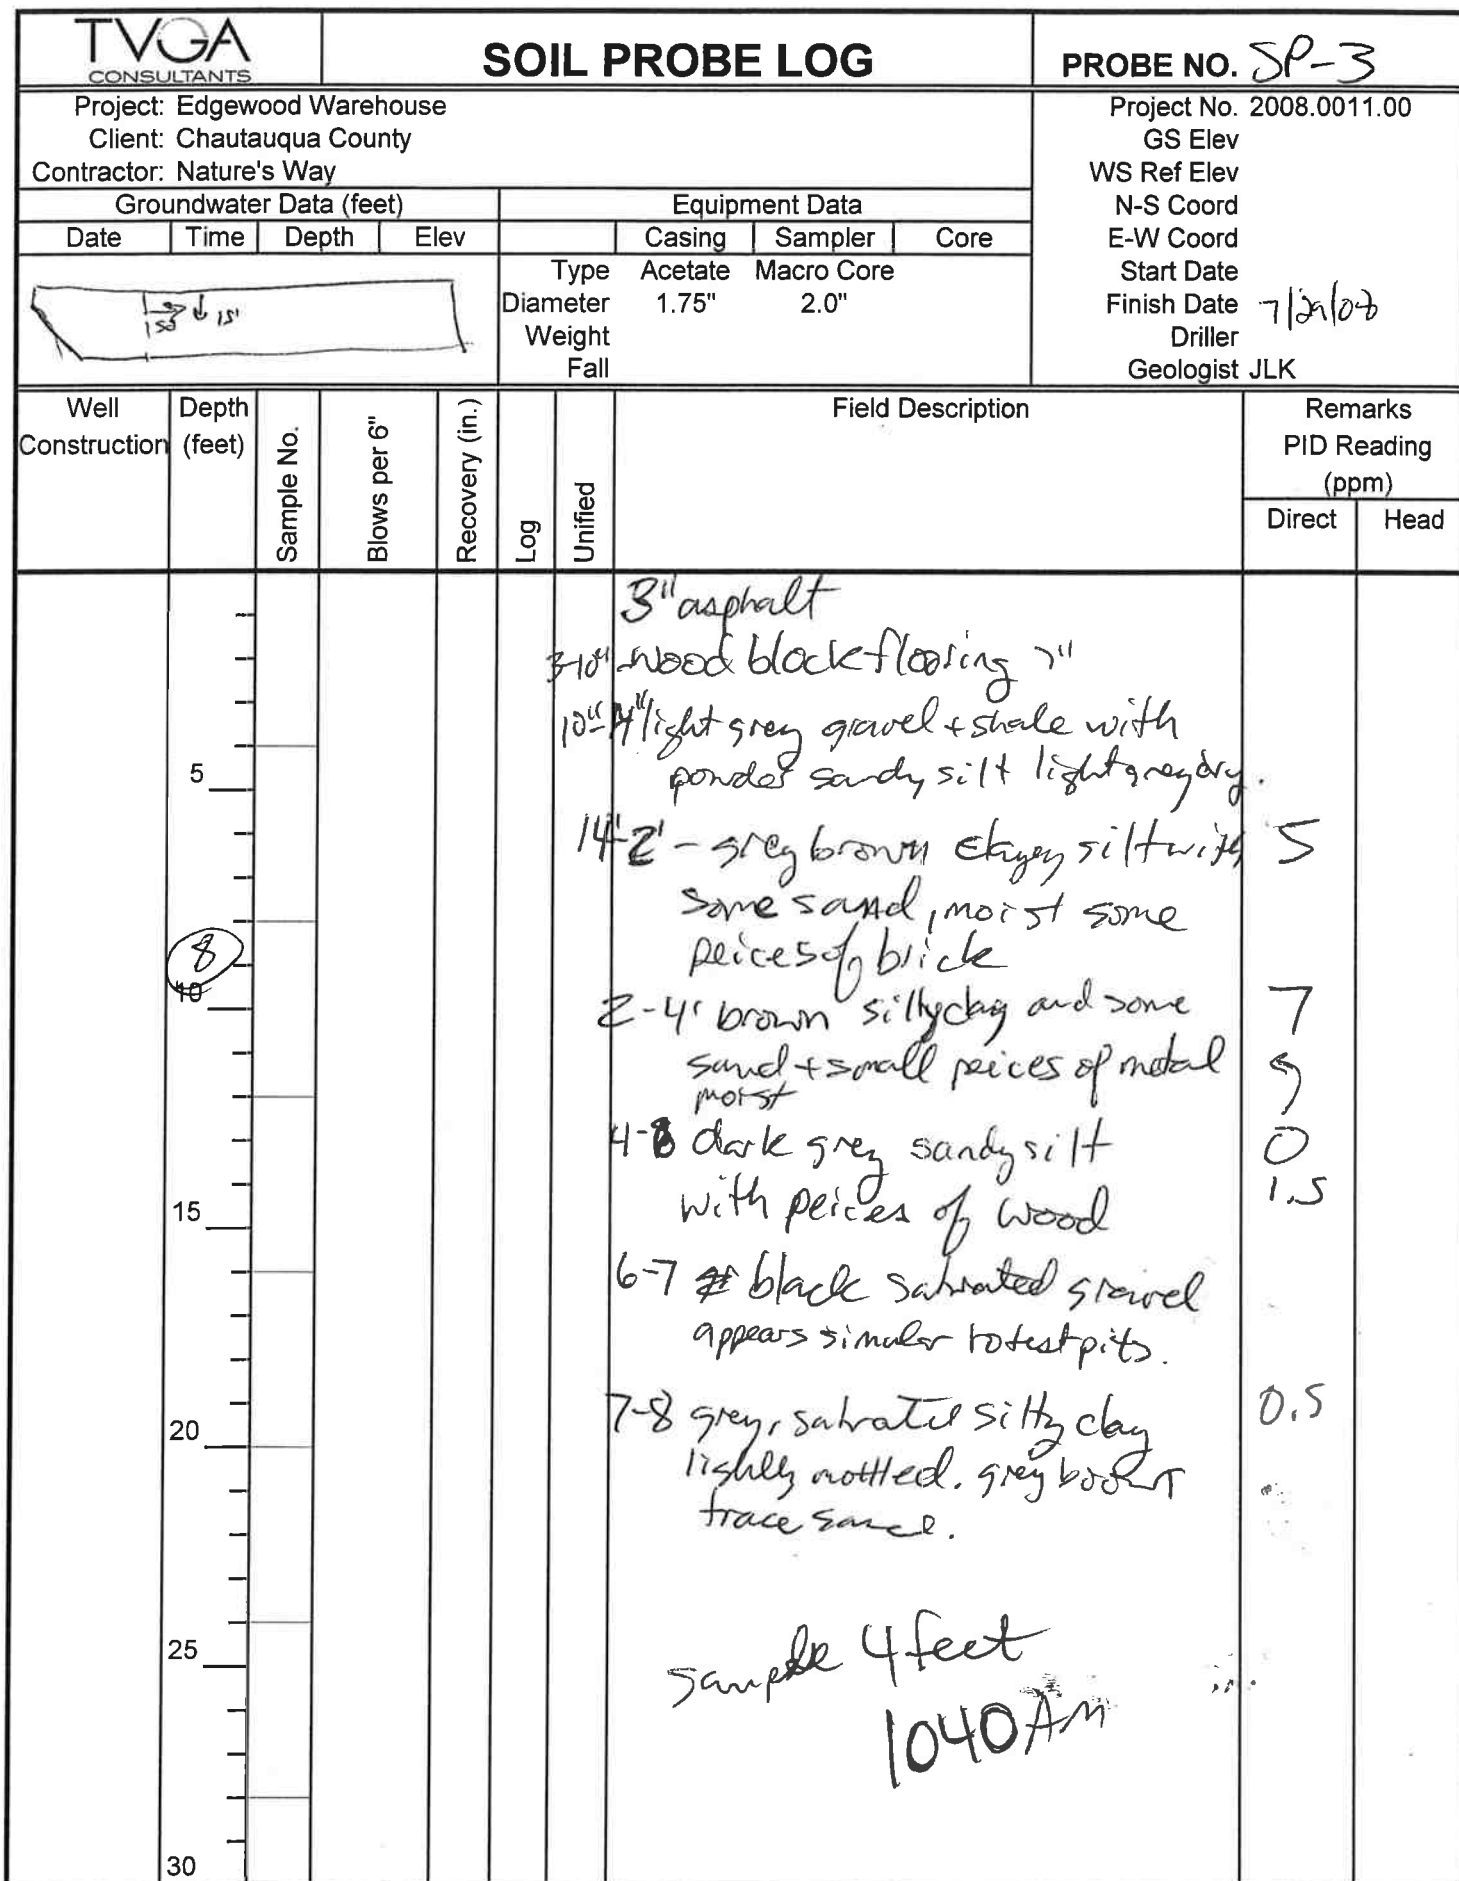 TVGA
CONSULTANTS
SOIL PROBE LOG
PROBE NO. SP-3
Project: Edgewood Warehouse
Client: Chautauqua County
Contractor: Nature's Way
Project No. 2008.0011.00
GS Elev
WS Ref Elev
N-S Coord
E-W Coord
Start Date
Finish Date 7/29/08
Driller
Geologist JLK
Groundwater Data (feet)
Date Time Depth Elev
15'
Equipment Data
Casing Sampler Core
Type Acetate Macro Core
Diameter 1.75" 2.0"
Weight
Fall
Well Construction
Depth (feet)
Sample No.
Blows per 6"
Recovery (in.)
Log
Unified
Field Description
Remarks
PID Reading
(ppm)
Direct Head
3" asphalt
3-10" wood block flooring 7"
10"-14" light grey gravel + shale with
powder sandy silt light grey dry.
5
14"-2' - grey brown clayey silt with 5
some sand, moist some
peices of brick
8
10
2-4' brown silty clay and some 7
sand + small peices of metal 9
moist
4-8 dark grey sandy silt 0
with peices of wood 1.5
15
6-7 black saturated gravel
appears simular to test pits.
7-8 grey, saturated silty clay 0.5
20
lightly mottled. grey
trace sand.
25
sample 4 feet
1040 AM
30